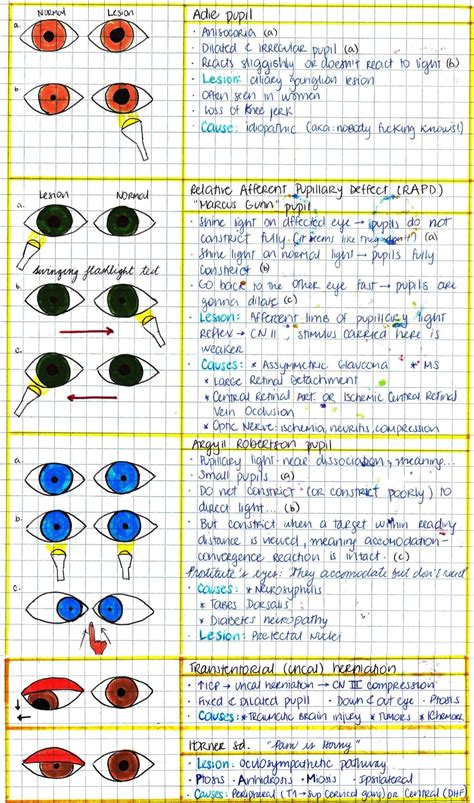 Normal Lesion
a.
b.
Adie pupil
· Anisocoria (a)
· Dilated & irregular pupil (a)
· Reacts sluggishly or doesn't react to light (b)
· Lesion: ciliary ganglion lesion
· Often seen in women
· Loss of knee jerk
· Cause: idiopathic (aka: nobody fucking knows!)
Lesion Normal
a.
Swinging flashlight test
b.
c.
Relative Afferent Pupillary Deffect (RAPD)
"Marcus Gunn" pupil
· Shine light on affected eye → pupils do not
constrict fully (it seems like they don't!) (a)
· Shine light on normal light → pupils fully
constrict (b)
· Go back to the other eye fast → pupils are
gonna dilate (c)
· Lesion: Afferent limb of pupillary light
reflex → CN II, stimulus carried here is
weaker
· Causes: * Assymetric Glaucoma * MS
* Large Retinal Detachment
* Central Retinal Art. or Ischemic Central Retinal
Vein Occlusion
* Optic Nerve: ischemia, neuritis, compression
a.
b.
c.
Argyll Robertson pupil
· Pupillary light-near dissociation, meaning...
· Small pupils (a)
· Do not constrict (or constrict poorly) to
direct light... (b)
· But constrict when a target within reading
distance is viewed, meaning accomodation-
convergence reaction is intact. (c)
Prostitute's eyes: They accomodate but don't react
· Causes: * Neurosyphilis
* Tabes Dorsalis
* Diabetes neuropathy
· Lesion: Pretectal Nuclei
Transtentorial (uncal) herniation
· ↑ICP → uncal herniation → CN III compression
· Fixed & dilated pupil · Down & out eye · Ptosis
· Causes: * Traumatic brain injury * Tumors
Horner sd. "Pam is Horny"
· Lesion: oculosympathetic pathway
· Ptosis · Anhidrosis · Miosis · Ipsilateral
· Causes: Peripheral (T1 → sup cervical gang) or Central (DHP